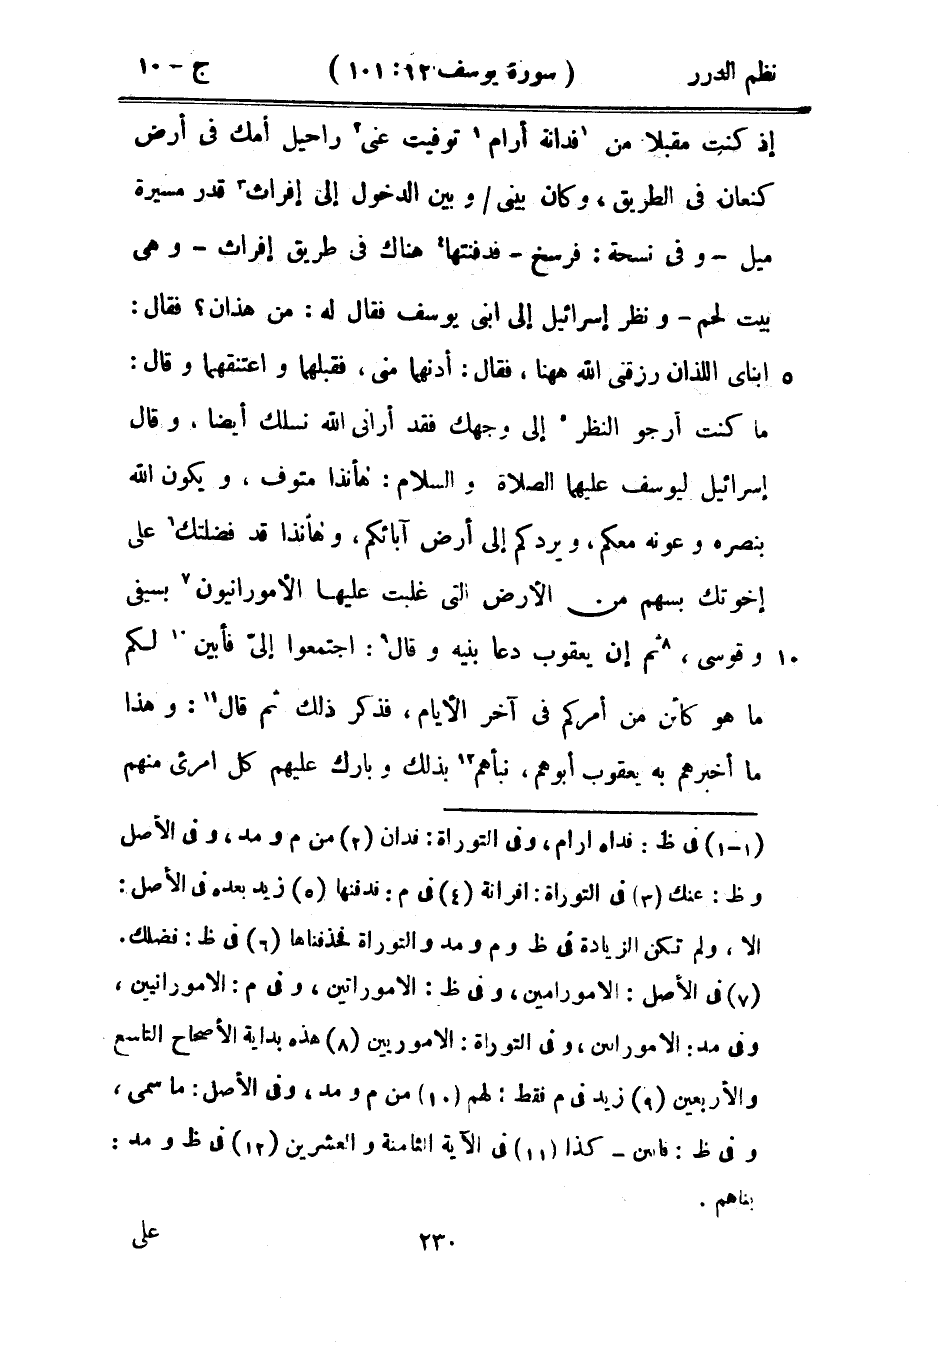 نظم الدرر ( سورة يوسف ٩٢: ١٠١ ) ج - ١٠
إذ كنت مقبلا من ١فدانة أرام١ توفيت عنى٢ راحيل أمك فى أرض
كنعان فى الطريق ، وكان بينى / و بين الدخول إلى إفراث٣ قدر مسيرة
ميل - و فى نسحة : فرسخ - فدفنتها٤ هناك فى طريق إفراث - و هى
بيت لحم - و نظر إسرائيل إلى ابنى يوسف فقال له : من هذان ؟ فقال :
٥ ابناى اللذان رزقنى الله ههنا ، فقال : أدنهما منى ، فقبلهما و اعتنقهما و قال :
ما كنت أرجو النظر ٥ إلى وجهك فقد أرانى الله نسلك أيضا ، و قال
إسرائيل ليوسف عليهما الصلاة و السلام : هأنذا متوف ، و يكون الله
بنصره و عونه معكم ، و يردكم إلى أرض آبائكم ، و هأنذا قد فضلتك٦ على
إخوتك بسهم من الأرض التى غلبت عليها الأمورانيون٧ بسيفى
١٠ و قوسى ، ٨ثم إن يعقوب دعا بنيه و قال٩ : اجتمعوا إلىّ فأبين ١٠ لكم
ما هو كائن من أمركم فى آخر الأيام ، فذكر ذلك ثم قال١١ : و هذا
ما أخبرهم به يعقوب أبوهم ، نبأهم١٢ بذلك و بارك عليهم كل امرئ منهم
(١-١) فى ظ : فداه ارام ، وفى التوراة : فدان (٢) من م و مد ، و فى الأصل
و ظ : عنك (٣) فى التوراة : افراتة (٤) فى م : فدفنها (٥) زيد بعده فى الأصل :
الا ، ولم تكن الزيادة فى ظ و م و مد و التوراة فحذفناها (٦) فى ظ : فضلك .
(٧) فى الأصل : الامورامين ، و فى ظ : الاموراتين ، و فى م : الامورانيين ،
وفى مد : الامورابين ، و فى التوراة : الاموريين (٨) هذه بداية الأصحاح التاسع
والأربعين (٩) زيد فى م فقط : لهم (١٠) من م و مد ، وفى الأصل : ما سمى ،
و فى ظ : فابين - كذا (١١) فى الآية الثامنة و العشرين (١٢) فى ظ و مد :
بناهم .
٢٣٠ على